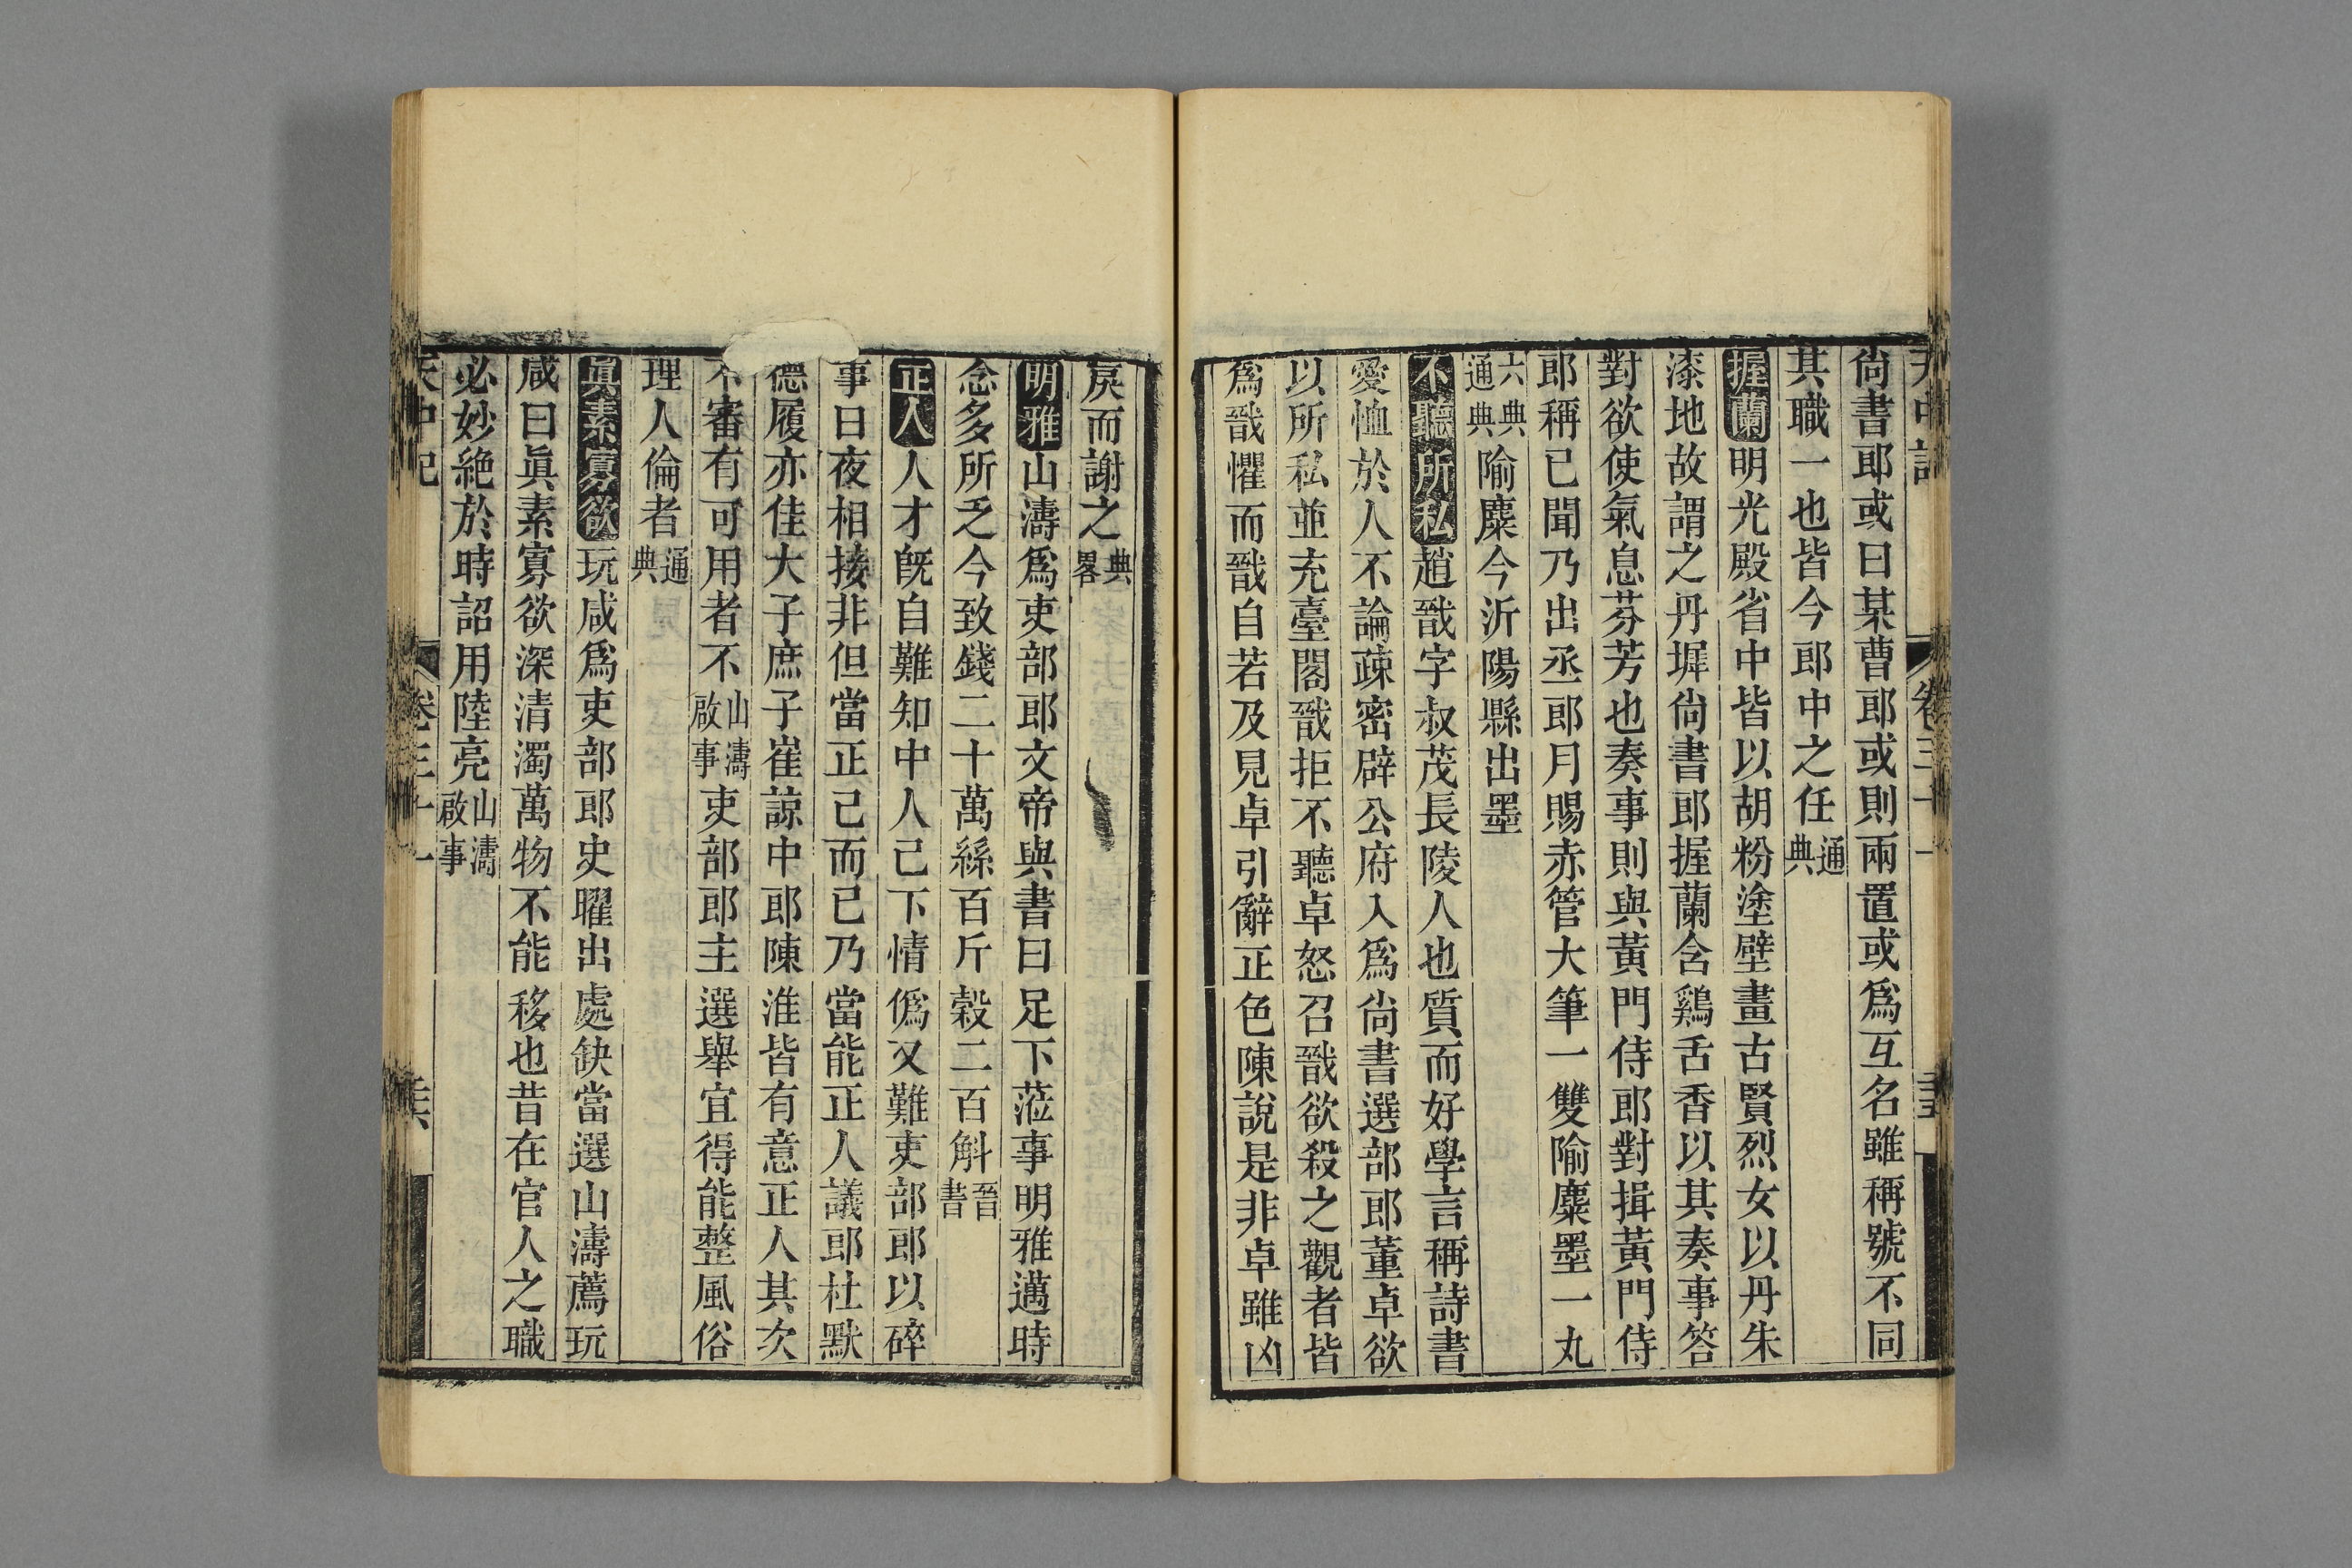 尚書郎或曰某曹郎或則兩置或爲互名雖稱號不同
其職一也皆今郎中之任通典
握蘭明光殿省中皆以胡粉塗壁畫古賢烈女以丹朱
漆地故謂之丹墀尚書郎握蘭含鷄舌香以其奏事答
對欲使氣息芬芳也奏事則與黃門侍郎對揖黃門侍
郎稱已聞乃出丞郎月賜赤管大筆一雙隃麋墨一丸
六典通典隃麋今沂陽縣出墨
不聽所私趙戩字叔茂長陵人也質而好學言稱詩書
愛恤於人不論疎密辟公府入爲尚書選部郎董卓欲
以所私並充臺閣戩拒不聽卓怒召戩欲殺之觀者皆
爲戩懼而戩自若及見卓引辭正色陳說是非卓雖凶
戾而謝之典畧
明雅山濤爲吏部郎文帝與書曰足下蒞事明雅邁時
念多所乏今致錢二十萬絲百斤穀二百斛晉書
正人人才旣自難知中人己下情僞又難吏部郎以碎
事日夜相接非但當正己而已乃當能正人議郎杜默
德履亦佳大子庶子崔諒中郎陳淮皆有意正人其次
不審有可用者不山濤啟事吏部郎主選舉宜得能整風俗
理人倫者通典
眞素寡欲玩咸爲吏部郎史曜出處缺當選山濤薦玩
咸曰眞素寡欲深清濁萬物不能移也昔在官人之職
必妙絕於時詔用陸亮山濤啟事
天中記 卷三十一